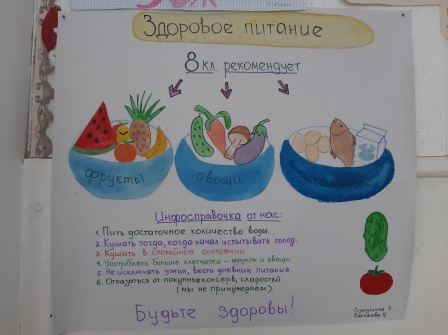 Здоровое питание
8 кл. рекомендует
фрукты
овощи
Инфосправочка от нас:
1. Пить достаточное количество воды.
2. Кушать тогда, когда начал испытывать голод.
3. Кушать в спокойном состоянии
4. Употреблять больше клетчатки – фрукты и овощи.
5. Не исключать ужин, вести дневник питания.
6. Отказаться от покупных консерв, сладостей
(мы не принуждаем).
Будьте здоровы!